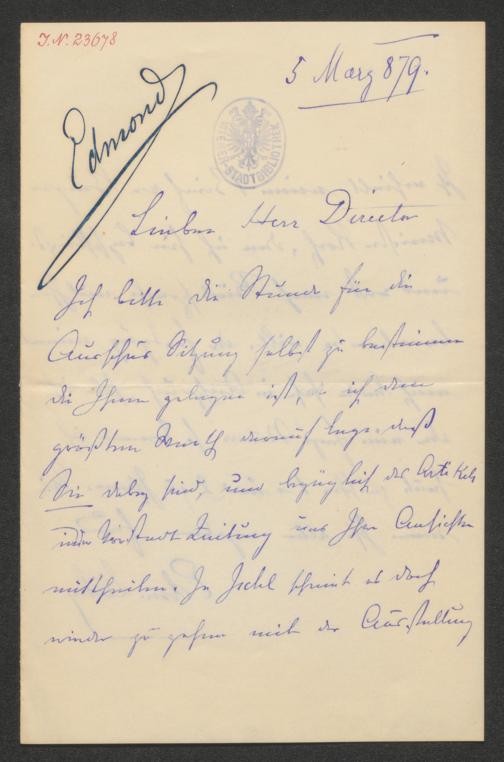 J. N. 23678
5 März 879.
Edmond
WIENER STADTBIBLIOTHEK
Lieber Herr Director
Ich bitte die Stunde für die
Ausschus Sitzung selbst zu bestimmen
die Ihnen gelegen ist, da ich den
größten Werth darauf lege, daß
Sie dabey sind, um bezüglich des Artikels
in der Vorstadt Zeitung uns Ihre Ansichten
mittheilen. In Ischl scheint es doch
wieder zu gehen mit der Ausstellung